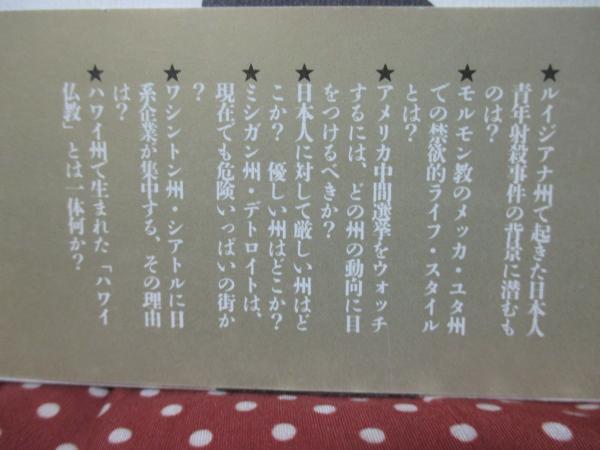 ★ルイジアナ州で起きた日本人
青年射殺事件の背景に潜むも
のは？
★モルモン教のメッカ・ユタ州
での禁欲的ライフ・スタイル
とは？
★アメリカ中間選挙をウォッチ
するには、どの州の動向に目
をつけるべきか？
★日本人に対して厳しい州はど
こか？　優しい州はどこか？
★ミシガン州・デトロイトは、
現在でも危険いっぱいの街か
？
★ワシントン州・シアトルに日
系企業が集中する、その理由
は？
★ハワイ州で生まれた「ハワイ
仏教」とは一体何か？